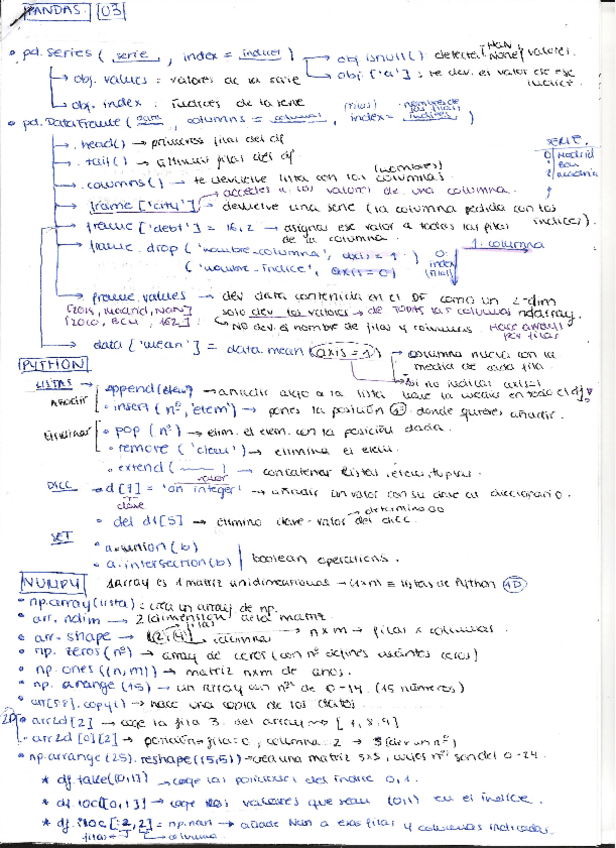 PANDAS 03
• pd.Series ( serie , index = indices ) → obj.isnull() detecta (NaN, None) valores.
→ obj.values = valores de la serie → obj['a'] : te dev. el valor de ese índice.
→ obj.index : índices de la serie
• pd.DataFrame ( data , columns = columnas , index = indices ) (filas) nombres de las filas
→ .head() → primeras filas del df
→ .tail() → últimas filas del df
→ .columns() → te devuelve lista con las columnas (nombres)
SERIE
0 Madrid
1 BCN
2 Madrid
accedes a los valores de una columna.
→ frame['city'] → devuelve una serie (la columna pedida con los índices).
→ frame['debt'] = 16,2 → asignas ese valor a todas las filas de la columna
→ frame.drop ('nombre-columna', axis = 1)
('nombre-índice', axis = 0)
1. columna
0. index (filas)
→ frame.values → dev data contenida en el DF como un 2-dim ndarray.
solo dev los valores → de TODAS las columnas
NO dev. el nombre de filas y columnas. Hace arrays por filas
[2014, Madrid, NaN]
[2010, BCN, 162]
→ data['mean'] = data.mean(axis = 1) → columna nueva con la media de cada fila.
→ si no indicas axis=1 hace la media en todo el df!
PYTHON
LISTAS → Añadir
• append(elem) → añadir algo a la lista
• insert (nº, 'elem') → pones la posición nº donde quieres añadir.
Eliminar
• pop (nº) → elim. el elem. con la posición dada.
• remove ('elem') → elimina el elem.
• extend ( ) → concatenar listas,
DICC → d[7] = 'an integer' → añadir un valor con su clave al diccionario.
valor
clave
• del d1[5] → elimino clave-valor determinado del dicc.
SET
• a.union(b)
• a.intersection(b) | boolean operations.
NUMPY 1 array es 1 matriz unidimensional → 1xm = listas de Python 1D
• np.array(lista) = crea un array de np.
• arr.ndim → 2 (dimensión de la matriz.
• arr.shape → (2, 4) filas columnas → n x m → filas x columnas.
• np. zeros (nº) → array de ceros (con nº defines cuántos ceros)
• np.ones ((n,m)) → matriz nxm de unos.
• np. arange (15) → un array con nºs de 0-14. (15 números)
• arr[5:8].copy() → hace una copia de los datos.
2D • arr2d[2] → coge la fila 3 del array → [7, 8, 9]
• arr2d [0][2] → posición fila: 0, columna: 2 → 3 (dev un nº)
• np.arange (25). reshape (5,5) → crea una matriz 5x5, cuyos nºs son del 0-24.
* df.take([0,1]) → coge las posiciones del índice 0, 1.
* df.loc[[0,1]] → coge los valores que sean (0,1) en el índice.
* df.iloc[:2, 2] = np.nan → añade NaN a esas filas y columnas indicadas.
filas columna